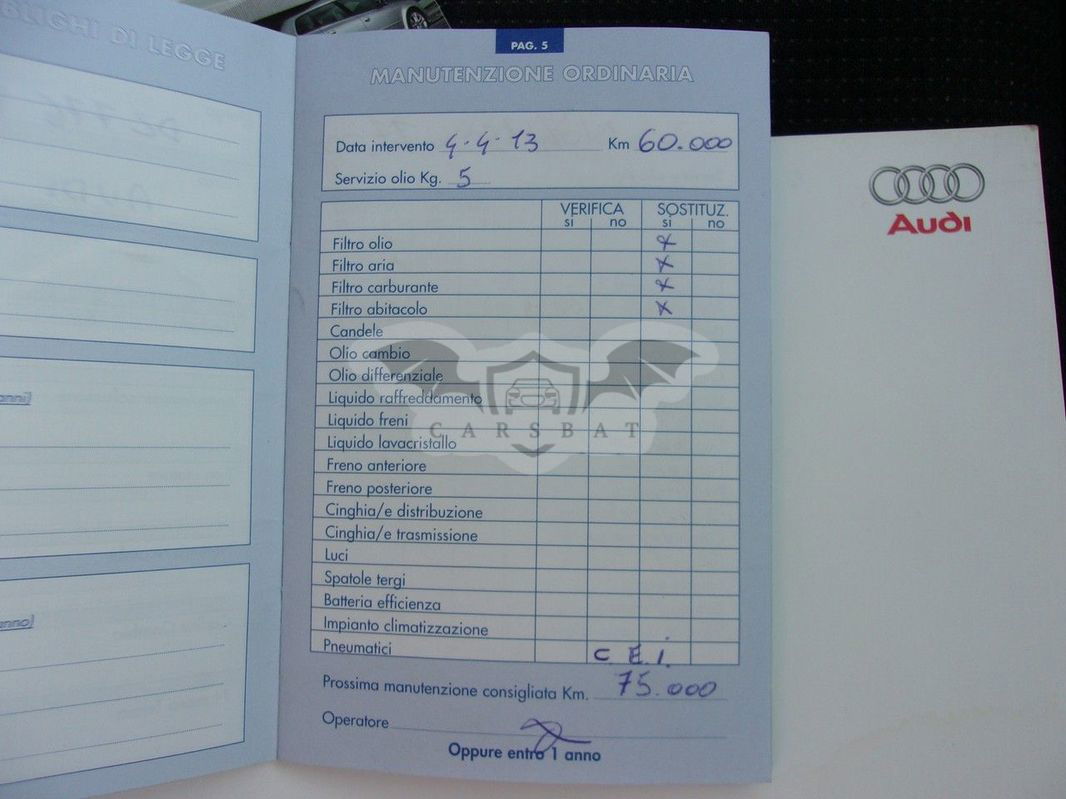 BLIGHI DI LEGGE
anni)
anno)
PAG. 5
MANUTENZIONE ORDINARIA
Data intervento 4-4-13 Km 60.000
Servizio olio Kg. 5
VERIFICA SOSTITUZ.
si no si no
Filtro olio x
Filtro aria x
Filtro carburante x
Filtro abitacolo x
Candele
Olio cambio
Olio differenziale
Liquido raffreddamento
Liquido freni
CARSBAT
Liquido lavacristallo
Freno anteriore
Freno posteriore
Cinghia/e distribuzione
Cinghia/e trasmissione
Luci
Spatole tergi
Batteria efficienza
Impianto climatizzazione
Pneumatici C E.I.
Prossima manutenzione consigliata Km. 75.000
Operatore
Oppure entro 1 anno
Audi